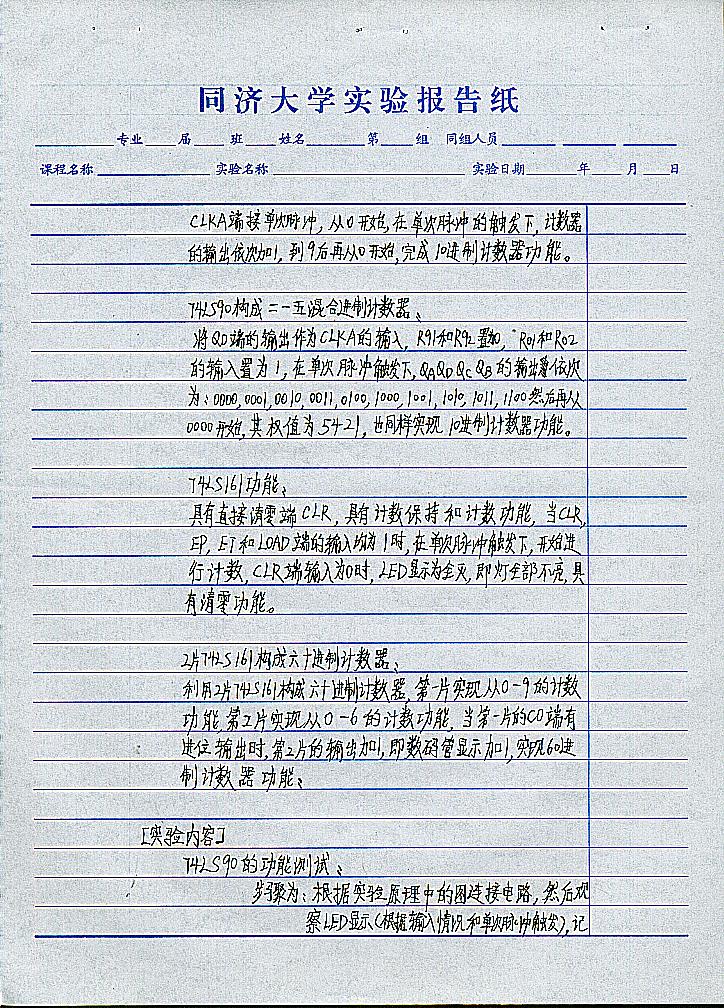 同济大学实验报告纸
专业 届 班 姓名 第 组 同组人员
课程名称 实验名称 实验日期 年 月 日
CLKA端接单次脉冲，从0开始，在单次脉冲的触发下，计数器
的输出依次加1，到9后再从0开始，完成10进制计数器功能。
74LS90构成二一五混合进制计数器、
将QD端的输出作为CLKA的输入，R91和R92置，R01和R02
的输入置为1，在单次脉冲触发下，QAQDQCQB的输出依次
为：0000,0001,0010,0011,0100,1000,1001,1010,1011,1100然后再从
0000开始，其权值为5421，也同样实现10进制计数器功能。
74LS161功能、
具有直接清零端CLR，具有计数保持和计数功能，当CLR,
EP，ET和LOAD端的输入均为1时，在单次脉冲触发下，开始进
行计数，CLR端输入为0时，LED显示为全灭，即灯全部不亮，具
有清零功能。
2片74LS161构成六十进制计数器、
利用2片74LS161构成六十进制计数器，第一片实现从0-9的计数
功能，第2片实现从0-6的计数功能，当第一片的CO端有
进位输出时，第2片的输出加1，即数码管显示加1，实现60进
制计数器功能、
[实验内容]
74LS90的功能测试、
步骤为：根据实验原理中的图连接电路，然后观
察LED显示(根据输入情况和单次脉冲触发)，记